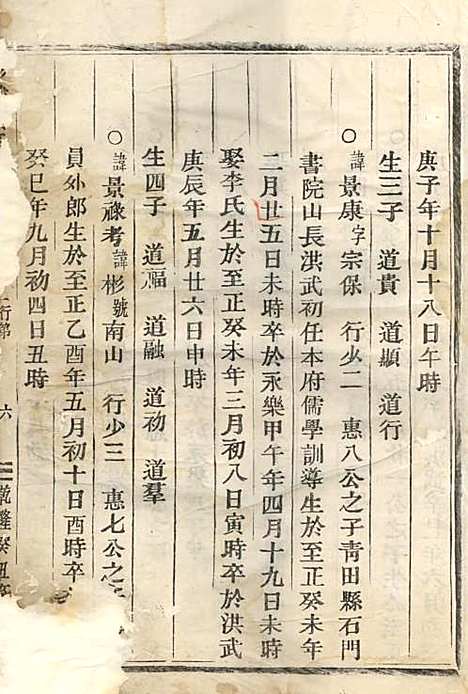 庚子年十月十八日午時
生三子 道貴 道顯 道行
○諱景康字宗保 行少二 惠八公之子青田縣石門
書院山長洪武初任本府儒學訓導生於至正癸未年
二月廿五日未時卒於永樂甲午年四月十九日未時
娶李氏生於至正癸未年三月初八日寅時卒於洪武
庚辰年五月廿六日申時
生四子 道福 道融 道初 道羣
○諱景祿考諱彬號南山 行少三 惠七公之
員外郎生於至正乙酉年五月初十日酉時卒
癸巳年九月初四日丑時
行第 六 乾隆癸丑年